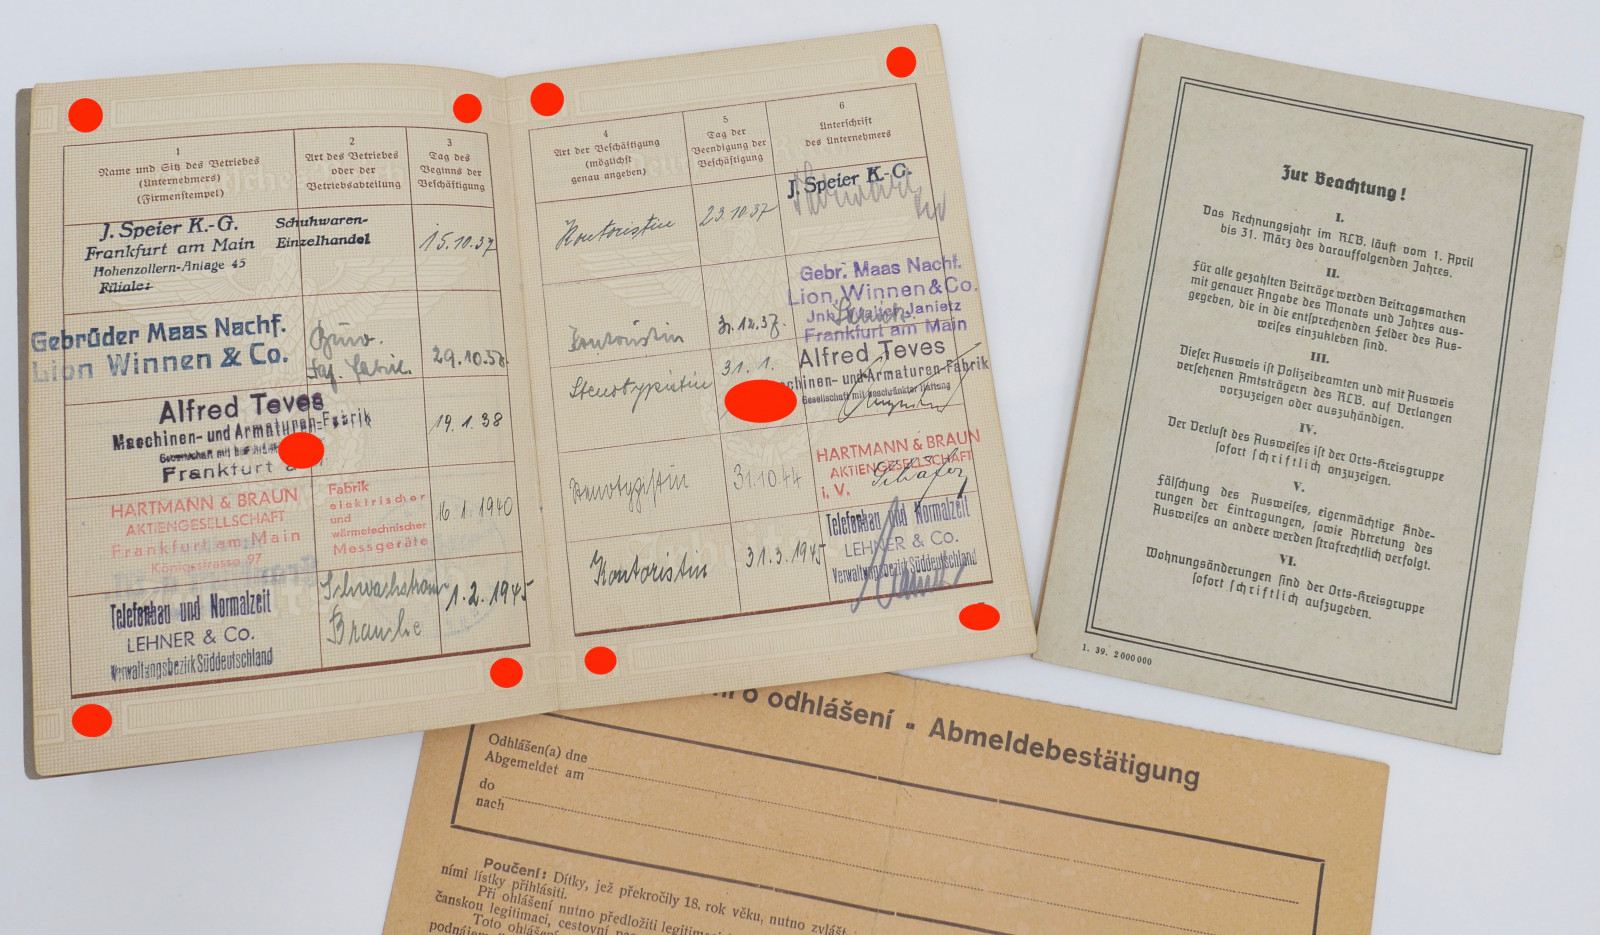 1
Name und Sitz des Betriebes
(Unternehmers)
(Firmenstempel)
2
Art des Betriebes
oder der
Betriebsabteilung
3
Tag des
Beginns der
Beschäftigung
J. Speier K.-G.
Frankfurt am Main
Hohenzollern-Anlage 45
Filiale:
Schuhwaren-
Einzelhandel
15.10.37
Gebrüder Maas Nachf.
Lion Winnen & Co.
Büro.
29.10.38
Alfred Teves
Maschinen- und Armaturen-Fabrik
Frankfurt a
19.1.38
HARTMANN & BRAUN
AKTIENGESELLSCHAFT
Frankfurt am Main
Königstrasse 97
Fabrik
elektrischer
und
wärmetechnischer
Messgeräte
16.1.1940
Telefonbau und Normalzeit
LEHNER & Co.
Verwaltungsbezirk Süddeutschland
Schwachstrom
Branche
1.2.1945
4
Art der Beschäftigung
(möglichst
genau angeben)
5
Tag der
Beendigung der
Beschäftigung
6
Unterschrift
des Unternehmers
Kontoristin
23.10.37
J. Speier K.-G.
Kontoristin
31.12.37.
Gebr. Maas Nachf.
Lion, Winnen & Co.
Frankfurt am Main
Stenotypistin
31.1.
Alfred Teves
Maschinen- und Armaturen-Fabrik
Gesellschaft mit beschränkter Haftung
Stenotypistin
31.10.44
HARTMANN & BRAUN
AKTIENGESELLSCHAFT
i. V. Schäfer
Kontoristin
31.3.1945
Telefonbau und Normalzeit
LEHNER & Co.
Verwaltungsbezirk Süddeutschland
Zur Beachtung!
I.
Das Rechnungsjahr im RLB. läuft vom 1. April
bis 31. März des darauffolgenden Jahres.
II.
Für alle gezahlten Beiträge werden Beitragsmarken
mit genauer Angabe des Monats und Jahres aus-
gegeben, die in die entsprechenden Felder des Aus-
weises einzukleben sind.
III.
Dieser Ausweis ist Polizeibeamten und mit Ausweis
versehenen Amtsträgern des RLB. auf Verlangen
vorzuzeigen oder auszuhändigen.
IV.
Der Verlust des Ausweises ist der Orts-Kreisgruppe
sofort schriftlich anzuzeigen.
V.
Fälschung des Ausweises, eigenmächtige Ände-
rungen der Eintragungen, sowie Abtretung des
Ausweises an andere werden strafrechtlich verfolgt.
VI.
Wohnungsänderungen sind der Orts-Kreisgruppe
sofort schriftlich aufzugeben.
1. 39. 2 000 000
o odhlášení - Abmeldebestätigung
Odhlášen(a) dne
Abgemeldet am
do
nach
Poučení: Dítky, jež překročily 18. rok věku, nutno zvlášt
ními lístky přihlásiti.
Při ohlášení nutno předložiti legitimac
čanskou legitimaci, cestovní pas
Toto ohlášení
podnájem